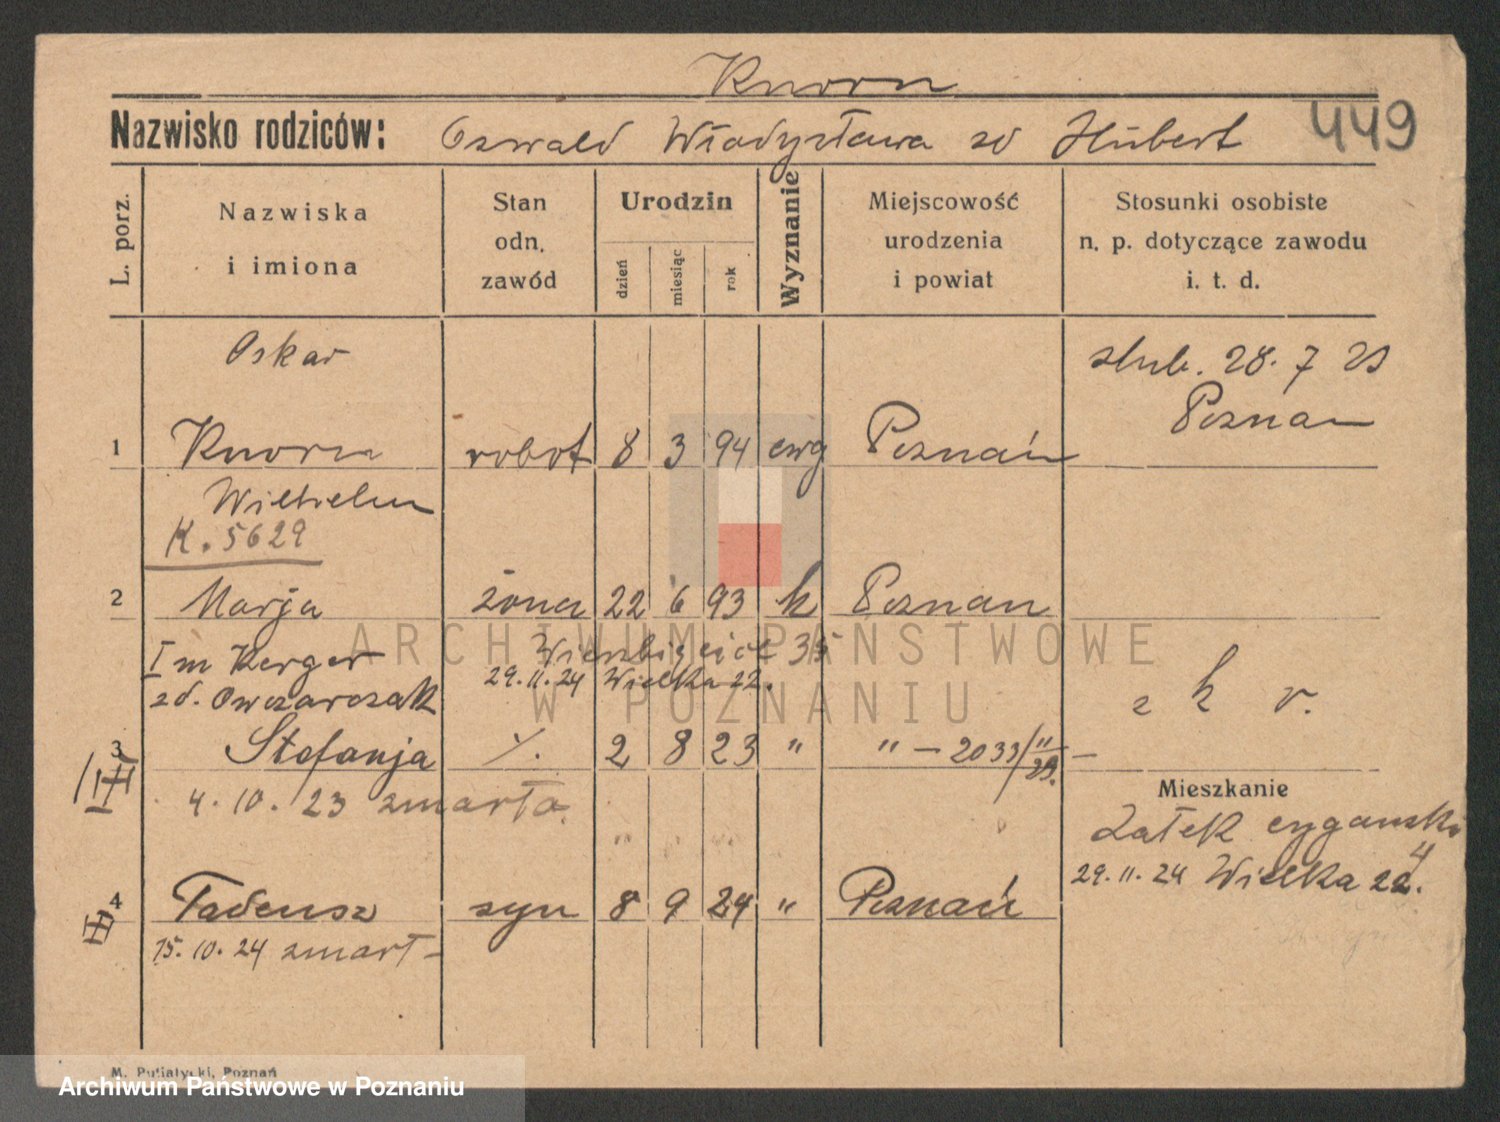 Knorn
Nazwisko rodziców: Oswald Władysława zd Hubert 449
L. porz.
Nazwiska i imiona
Stan odn. zawód
Urodzin
dzień
miesiąc
rok
Wyznanie
Miejscowość urodzenia i powiat
Stosunki osobiste n. p. dotyczące zawodu i. t. d.
Oskar
ślub. 28. 7 21
Poznan
1 Knorn robot 8 3 94 ewg Poznań
Wilhelm
K. 5629
2 Marja żona 22 6 93 k Poznan
I m Kerger 35
29.11.24 Wielka 22.
zd. Owczarczak
z k r.
3 Stefanja 2 8 23 " " – 2033/
4. 10. 23 zmarła.
Mieszkanie
cygański 4
29.11.24 Wielka 22.
4 Tadeusz syn 8 9 24 " Poznań
15. 10. 24 zmarł –
M. Putiatycki, Poznań
ARCHIWUM PAŃSTWOWE
W POZNANIU
Archiwum Państwowe w Poznaniu